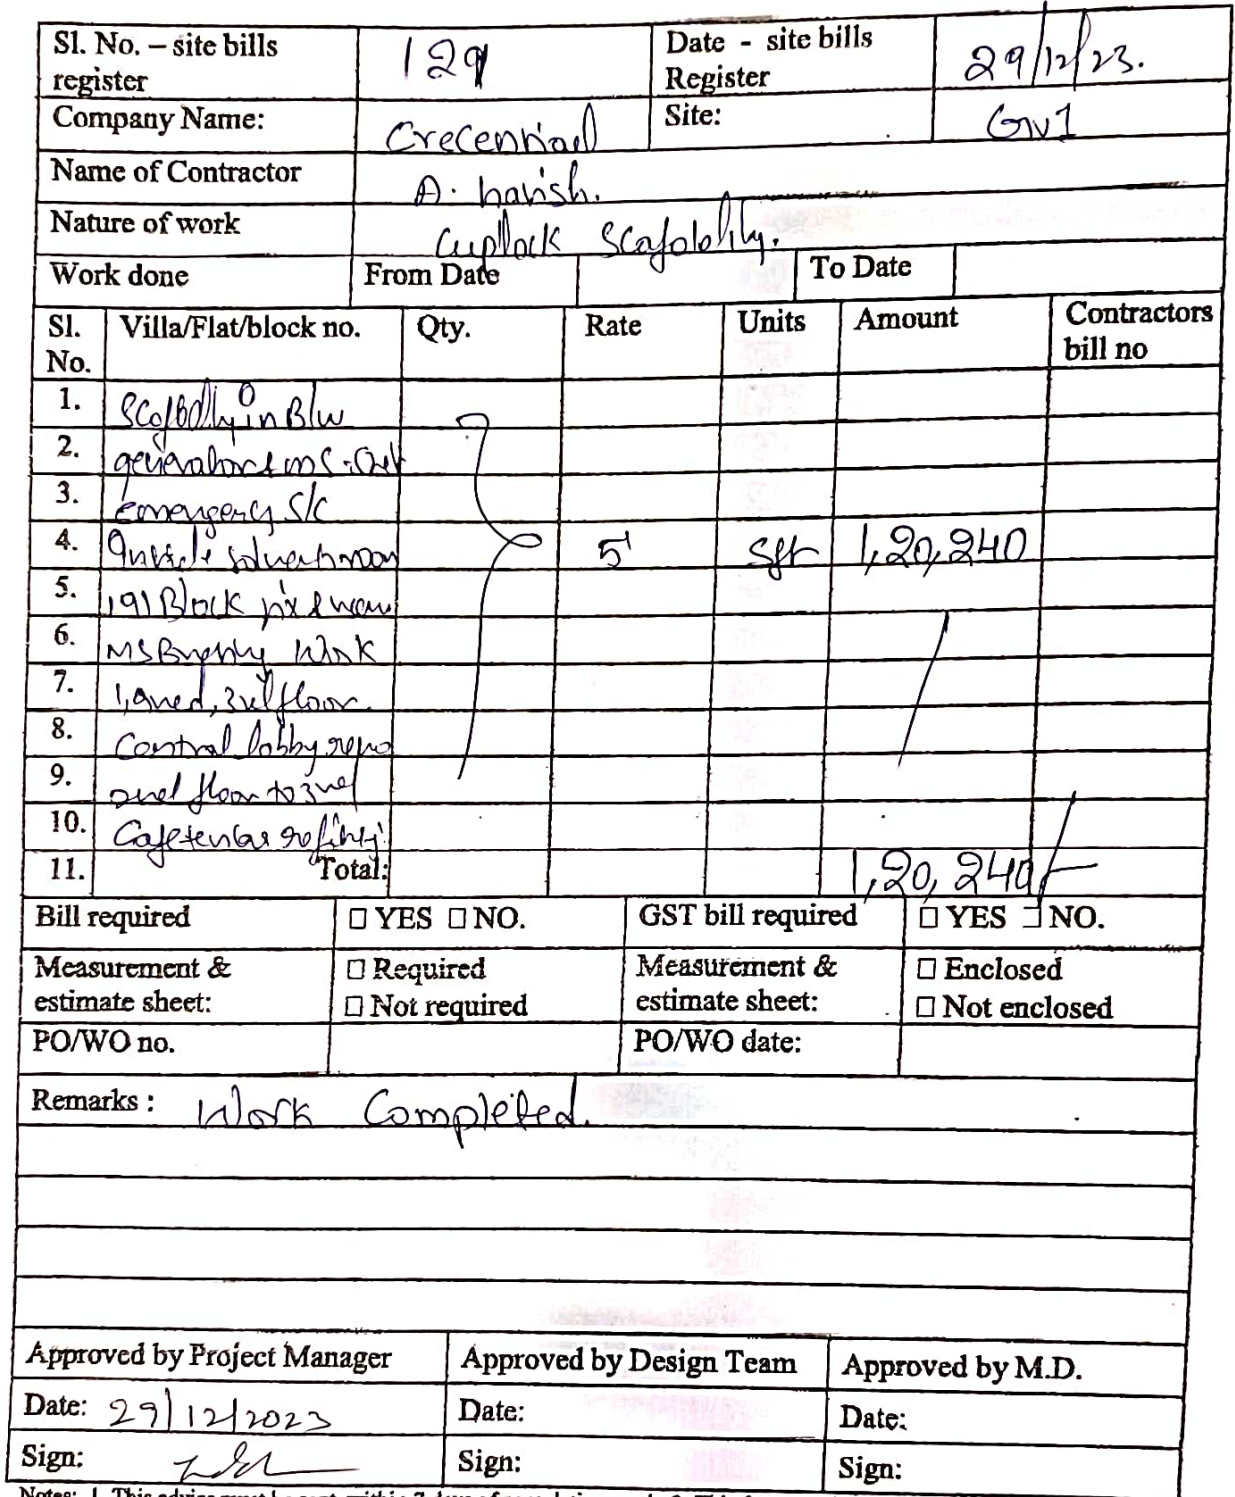 Sl. No. – site bills register 129 Date - site bills Register 29/12/23.
Company Name: Crecential Site: GV1
Name of Contractor A. harish.
Nature of work Cuplock Scafolding.
Work done From Date To Date
Sl. No. Villa/Flat/block no. Qty. Rate Units Amount Contractors bill no
1. in B/w
2.
3. Emergency S/C
4. 5' Sft 1,20,240
5. 191 Block
6. MS Work
7. floor
8. Central lobby
9. 2nd floor to 3rd
10.
11. Total: 1,20,240/-
Bill required ☐ YES ☐ NO. GST bill required ☐ YES ☐ NO.
Measurement & estimate sheet: ☐ Required ☐ Not required Measurement & estimate sheet: ☐ Enclosed ☐ Not enclosed
PO/WO no. PO/WO date:
Remarks : Work Completed.
Approved by Project Manager Approved by Design Team Approved by M.D.
Date: 29/12/2023 Date: Date:
Sign: Sign: Sign: